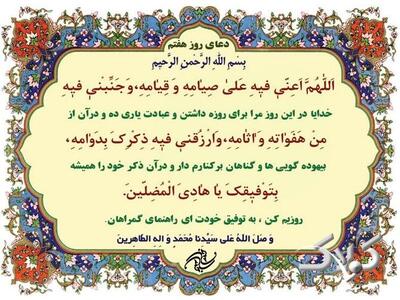 دعای روز هفتم
بِسْمِ اللهِ الرَّحْمنِ الرَّحِیمِ
اَللّهُمَّ اَعِنّی فیهِ عَلی صِیامِهِ وَ قِیامِهِ،وَ جَنِّبْنی فیهِ
خدایا در این روز مرا برای روزه داشتن و عبادت یاری ده و درآن از
مِنْ هَفَواتِهِ وَ اثامِهِ،وَارْزُقْنی فیهِ ذِکْرَکَ بِدَوامِهِ،
بیهوده گویی ها و گناهان برکنارم دار و درآن ذکر خود را همیشه
بِتَوْفیقِکَ یا هادِیَ الْمُضِلّینَ.
روزیم کن ، به توفیق خودت ای راهنمای گمراهان.
وَ صَلَ اللهُ عَلی سَیِّدِنا مُحَمَّد وَ الِهِ الطّاهِرینَ